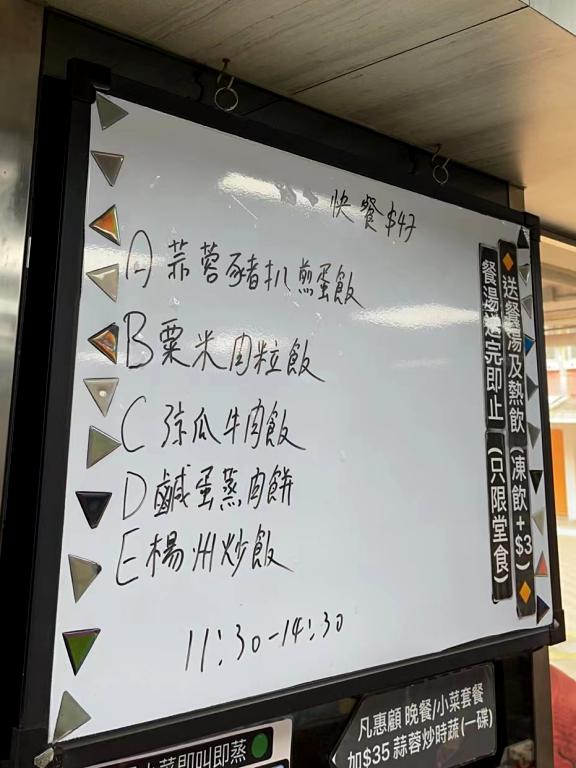 快餐$47
A 蒜蓉豬扒煎蛋飯
B 粟米肉粒飯
C 涼瓜牛肉飯
D 鹹蛋蒸肉餅
E 楊州炒飯
11:30-14:30
送餐湯及熱飲 (凍飲+$3)
餐湯送完即止 (只限堂食)
小菜即叫即蒸
凡惠顧 晚餐/小菜套餐
加$35 蒜蓉炒時蔬(一碟)